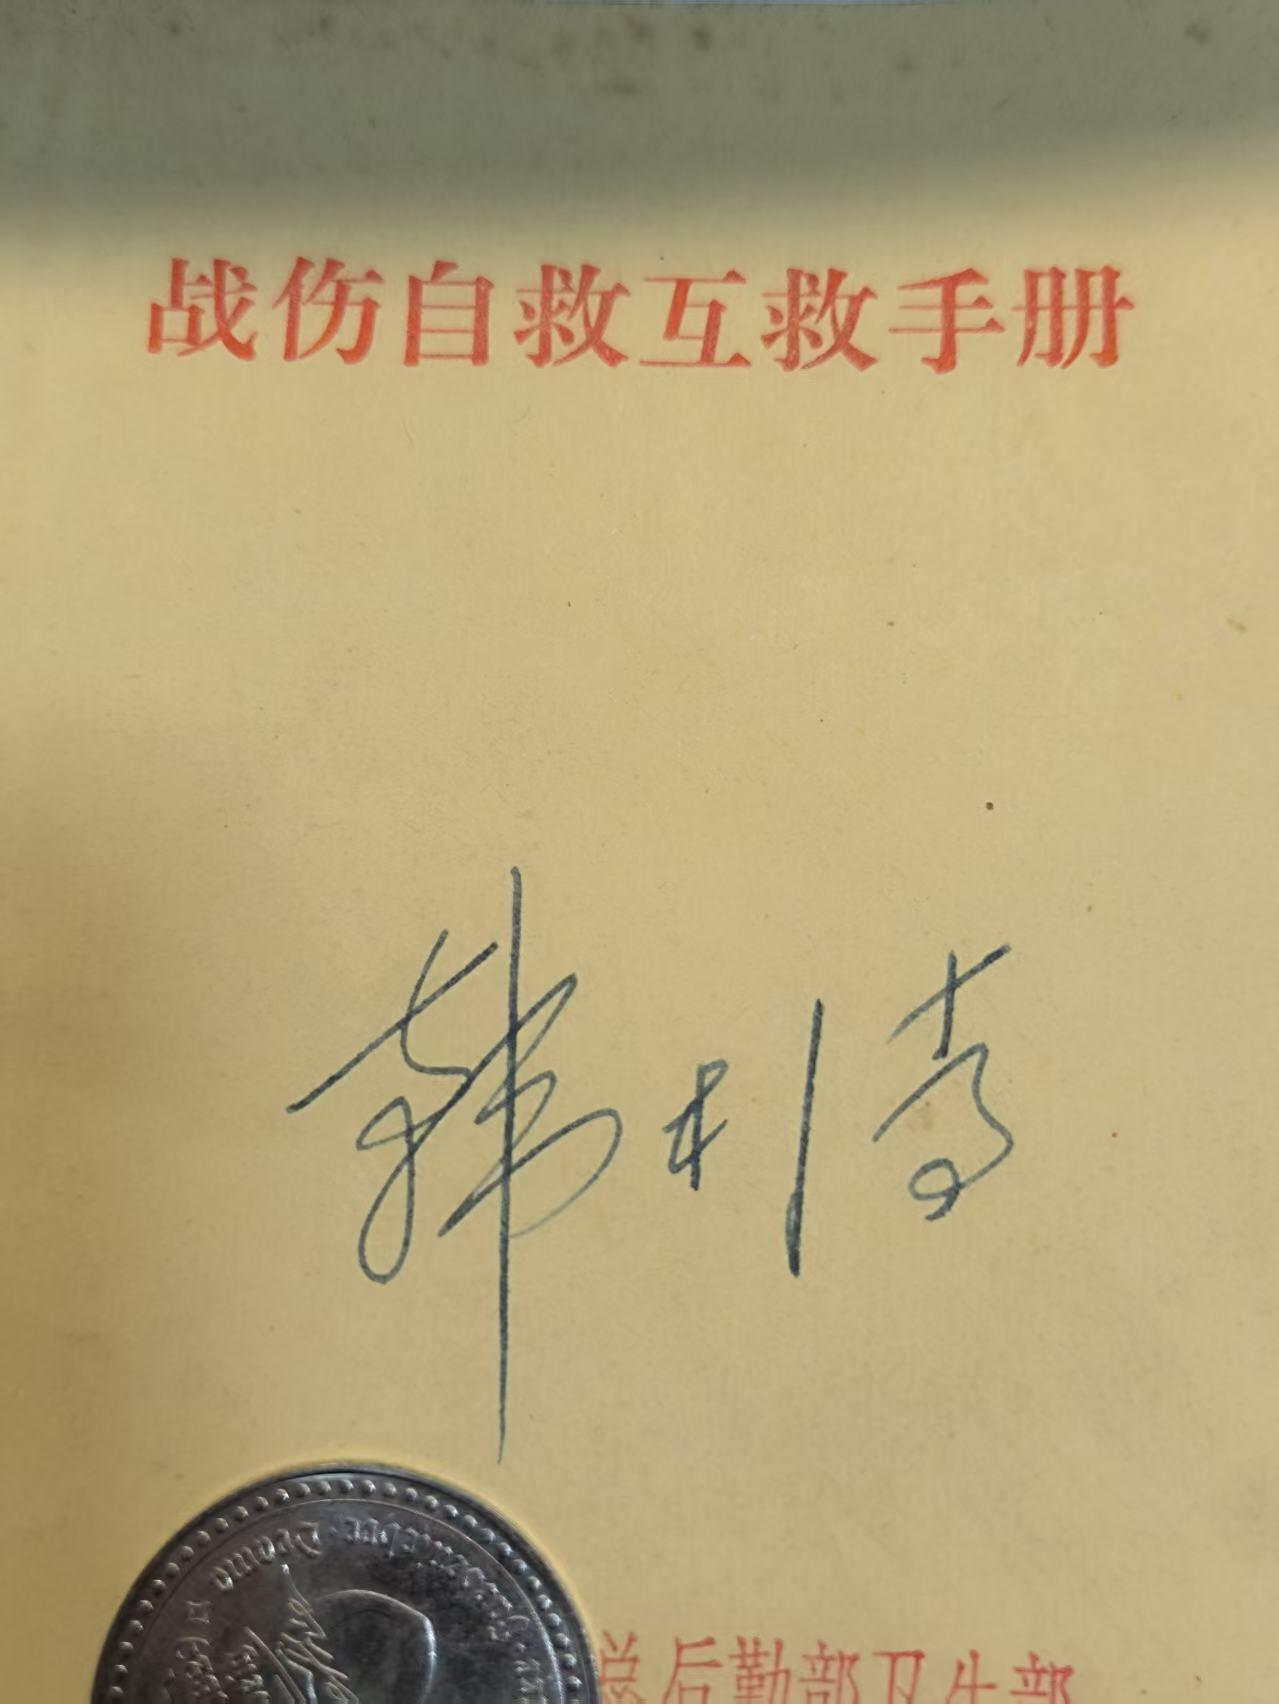 战伤自救互救手册
韩利
总后勤部卫生部